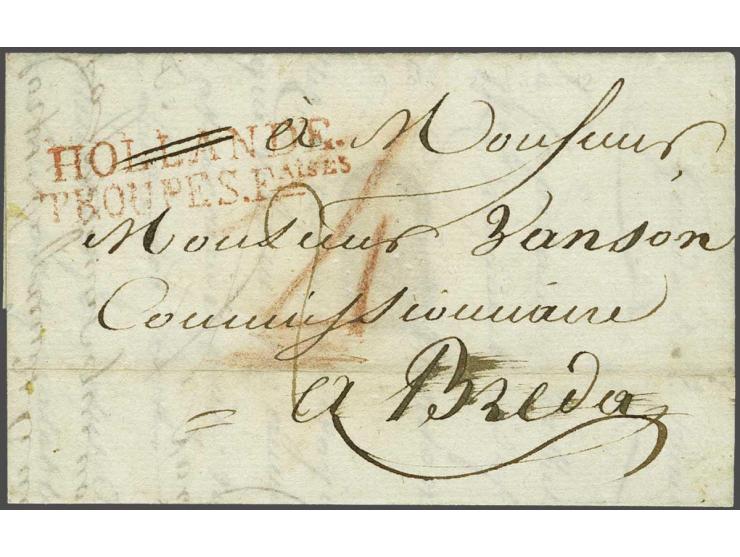 HOLLANDE.
TROUPES.F.AISES
à Monsieur
Monsieur Zanson
Commissionaire
a Breda
4